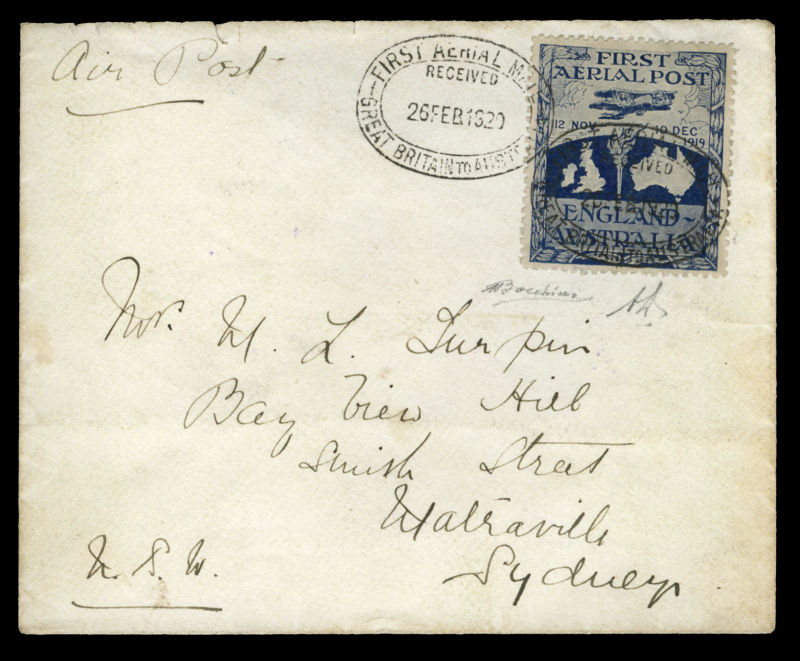 Air Post
FIRST AERIAL MAIL
RECEIVED
26 FEB 1920
GREAT BRITAIN TO AUST
FIRST
AERIAL POST
12 NOV 10 DEC
1919
ENGLAND~
AUSTRALIA
Mr. M. L. Turpin
Bay View Hill
Smith Street
Matraville
Sydney.
N. S. W.